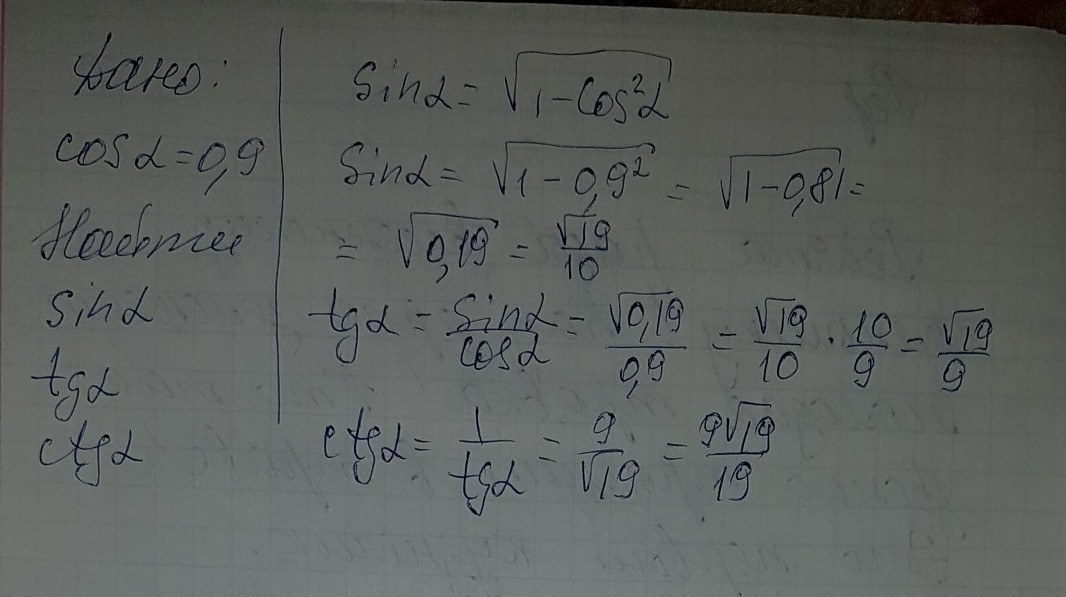 Дано:
cosα=0,9
Найти
sinα
tgα
ctgα
Sinα= √(1-Cos²α)
Sinα= √(1-0,9²) = √(1-0,81)=
= √0,19 = √19/10
tgα = Sinα/cosα = √0,19/0,9 = √19/10 · 10/9 = √19/9
ctgα= 1/tgα = 9/√19 = 9√19/19